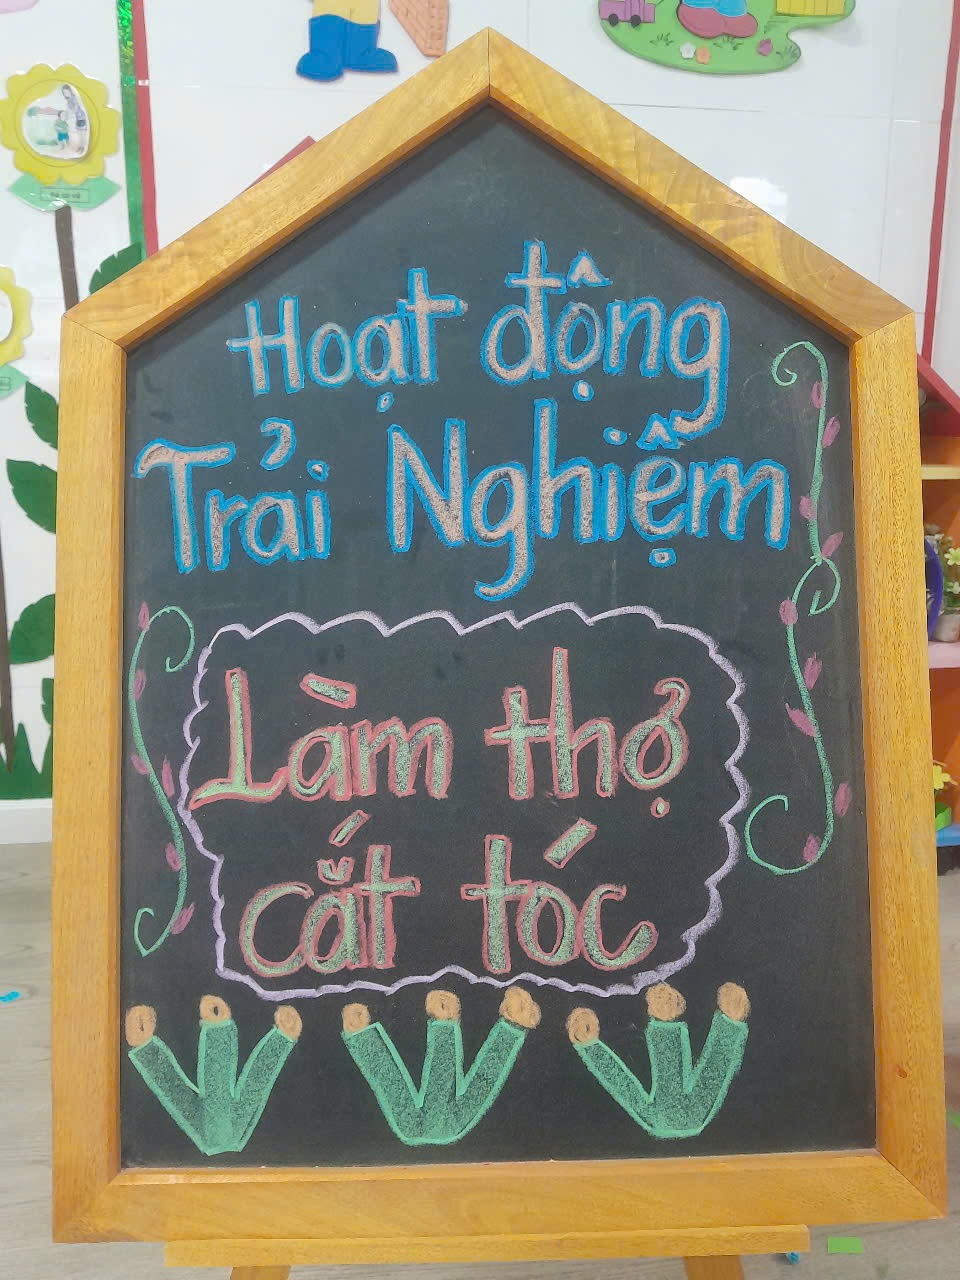 Hoạt động
Trải Nghiệm
Làm thợ
cắt tóc